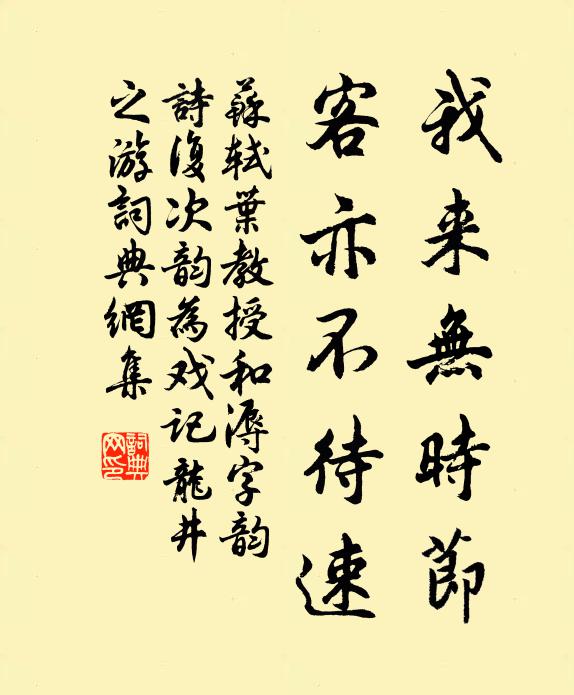 我来無時節
客亦不待速
蘇軾葉教授和溽字韵
詩復次韵為戏記龍井
之游詞典網集
詞典
网印